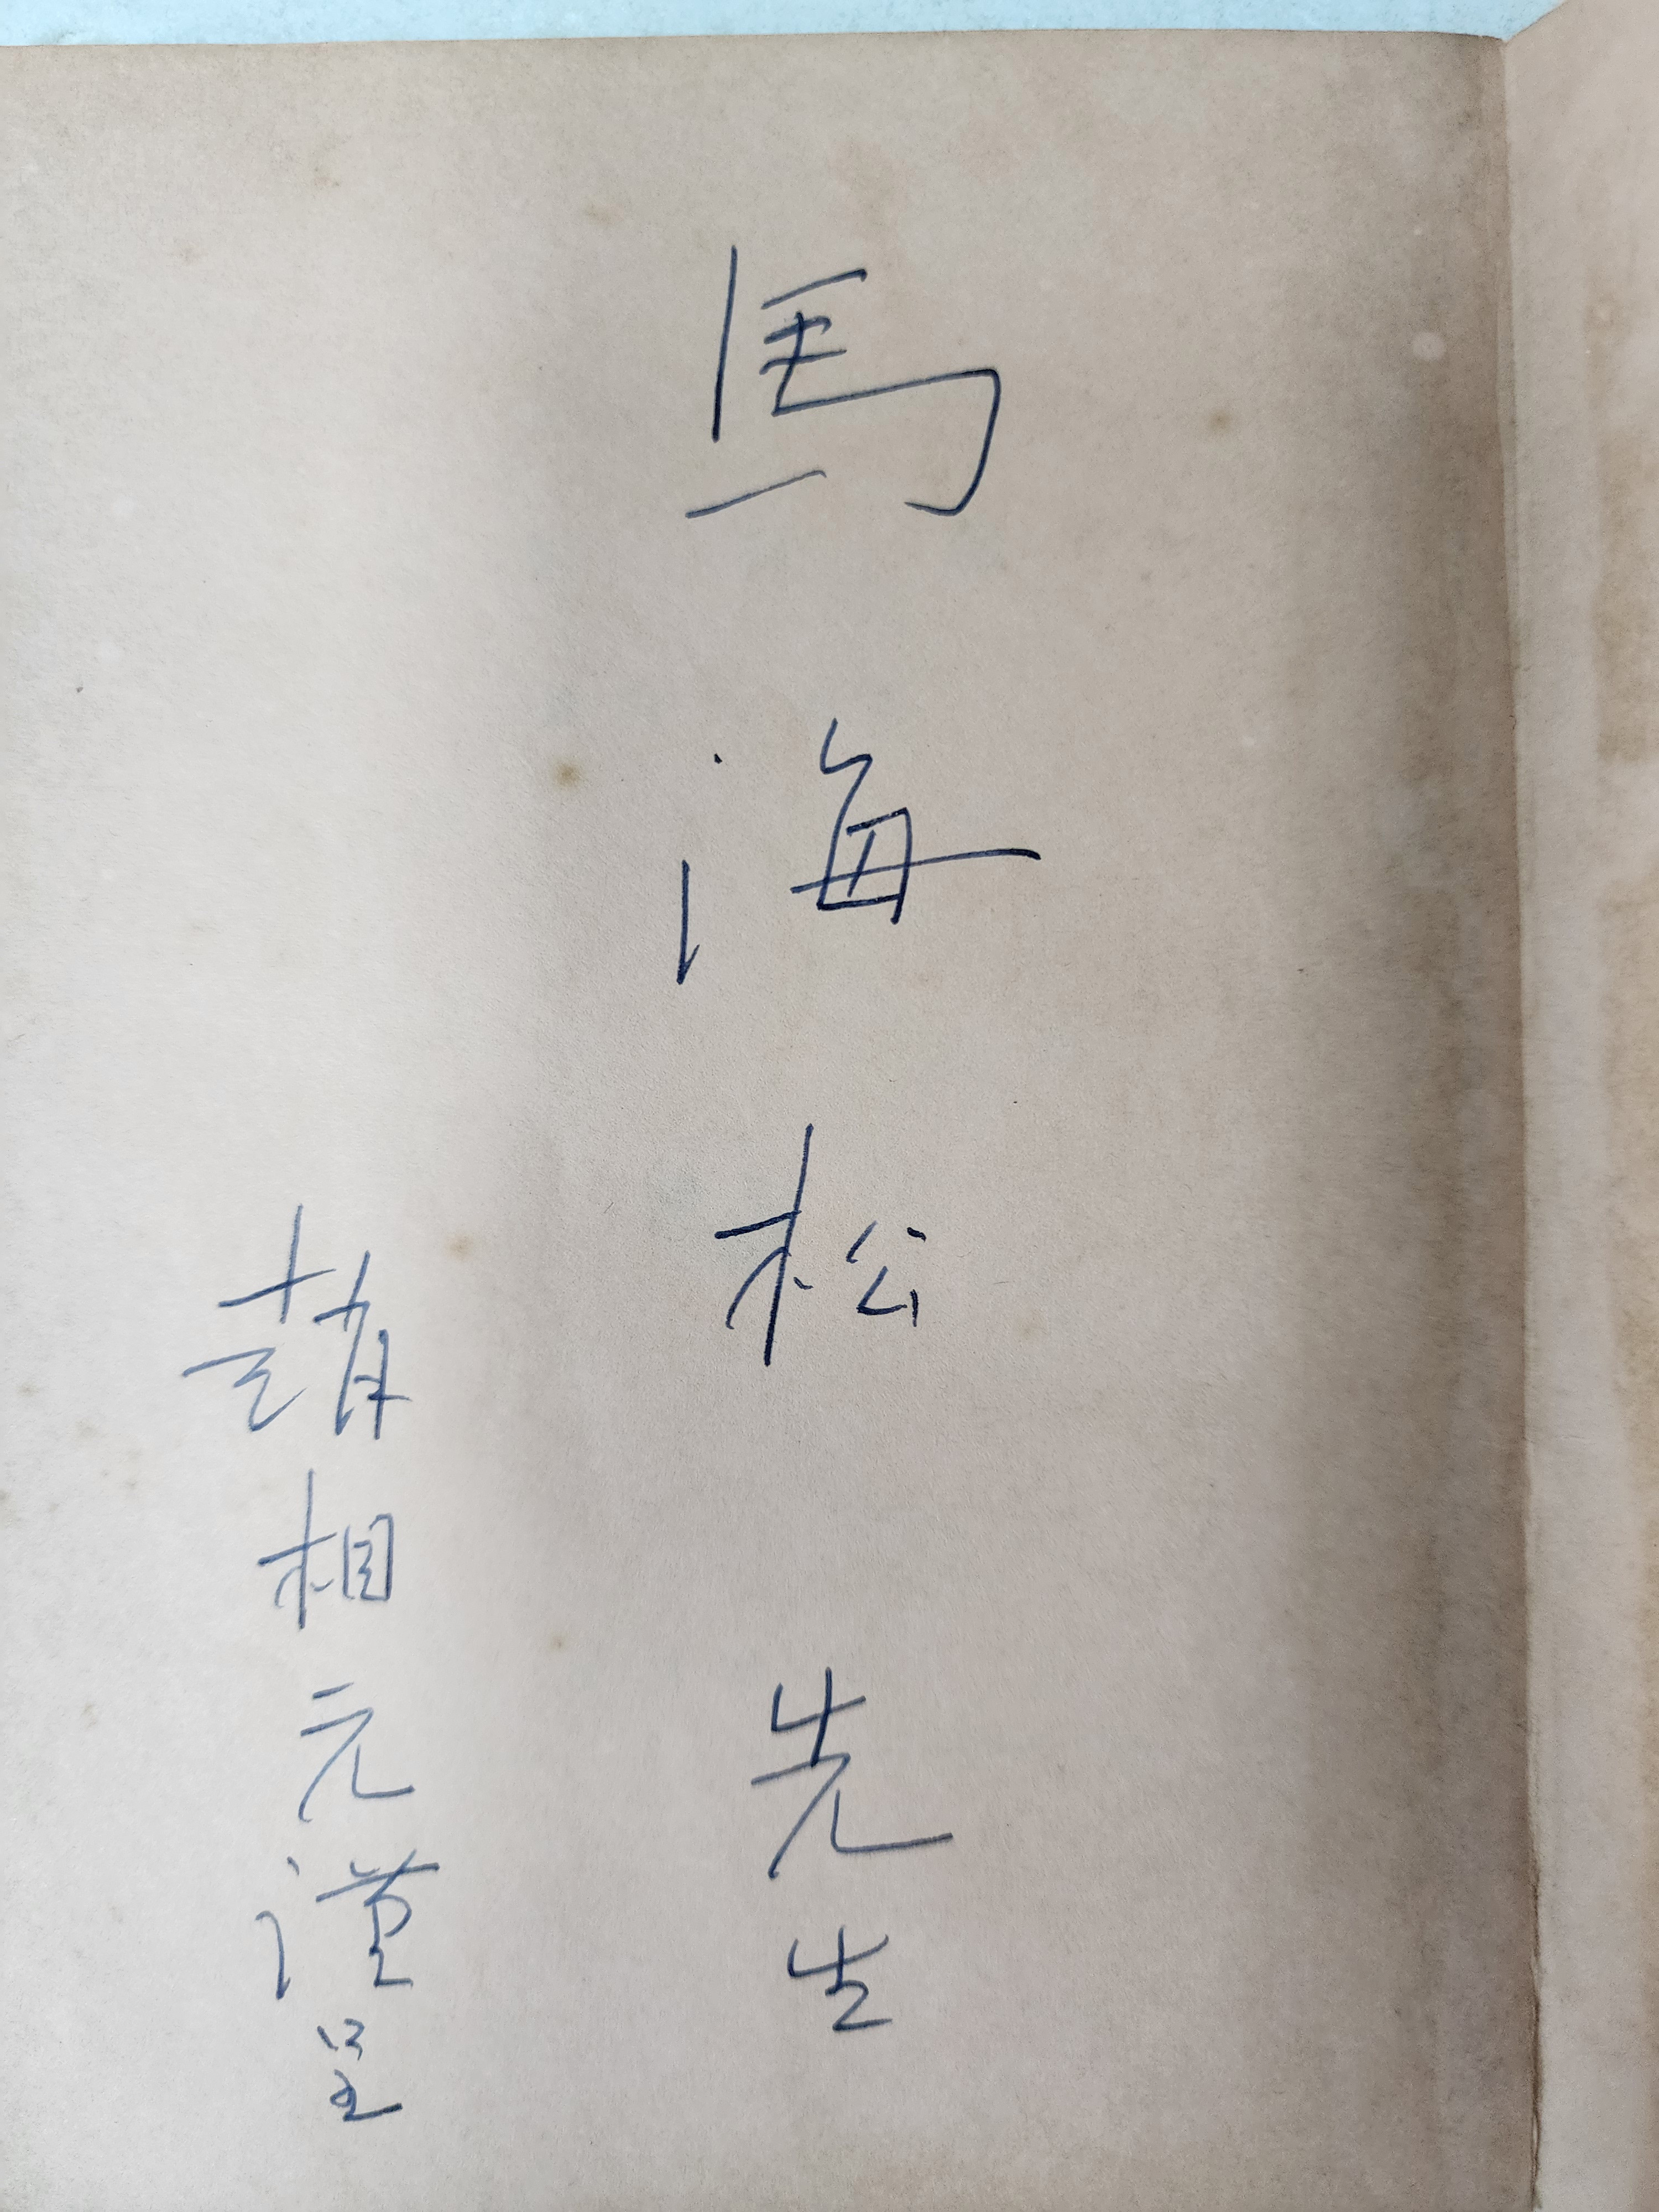 馬海松 先生
趙相元謹呈